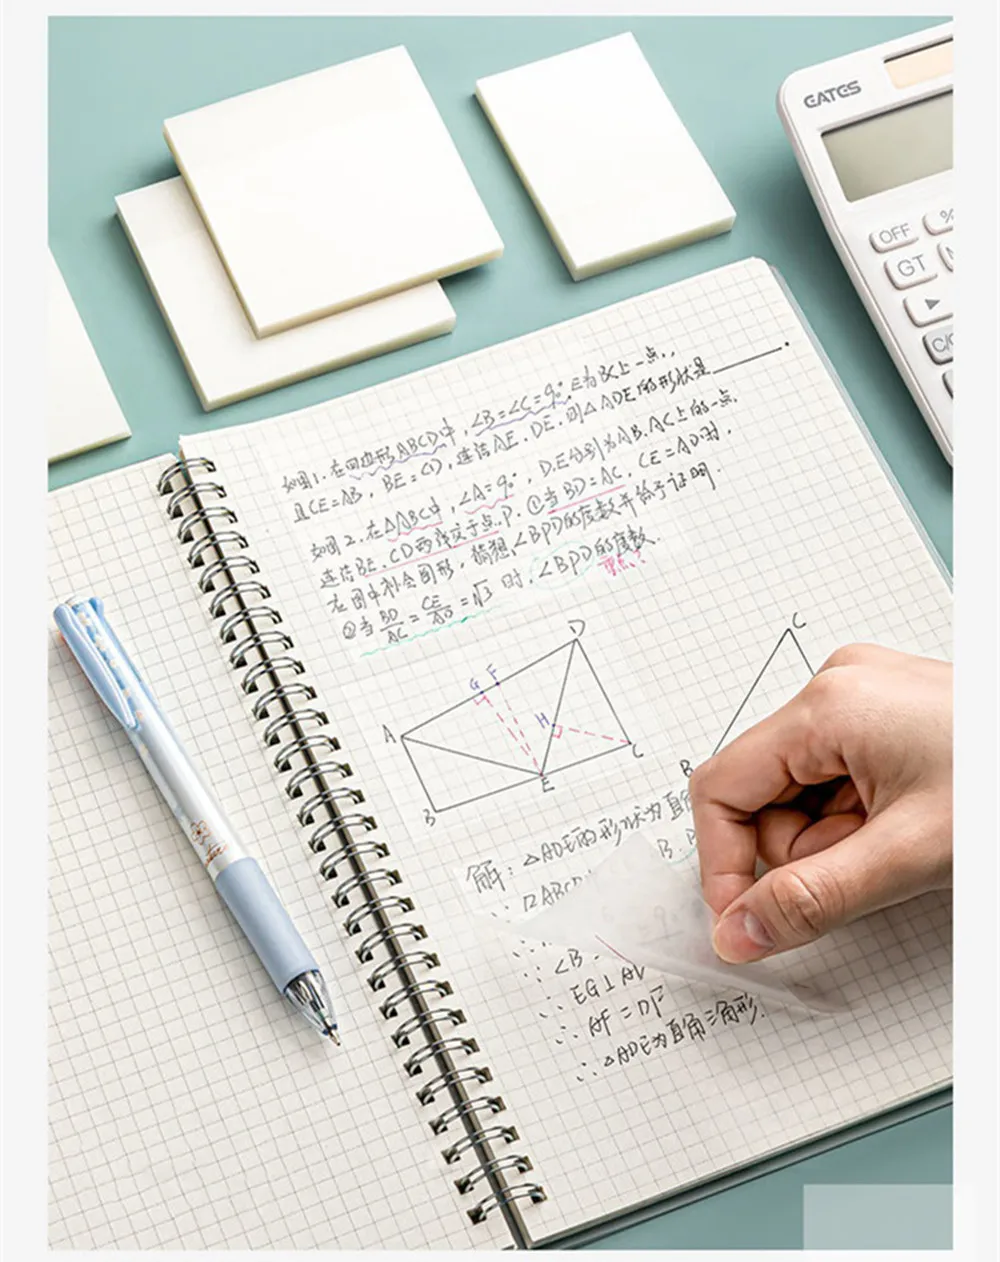 EATES
OFF
%
GT
如图1.在四边形ABCD中,∠B=∠C=90°E为BC上一点,
且CE=AB,BE=CD,连结AE.DE.则△ADE的形状是
如图2.在△ABC中,∠A=90°,D.E分别为AB.AC上的一点.
连结BE.CD两线交于点.P.①当BD=AC,CE=AD时,
在图中补全图形,猜想,∠BPD的度数并给予证明.
②当BD/AC=CE/AD=√3时,∠BPD的度数.
重点?
D
G F
A
H
C
E
B
C
B
解:△ADE的形状为直角
B.
□ABCD
∴
∠B
∴ EG⊥A
∴ AF=DF
∴ △ADE为直角三角形.